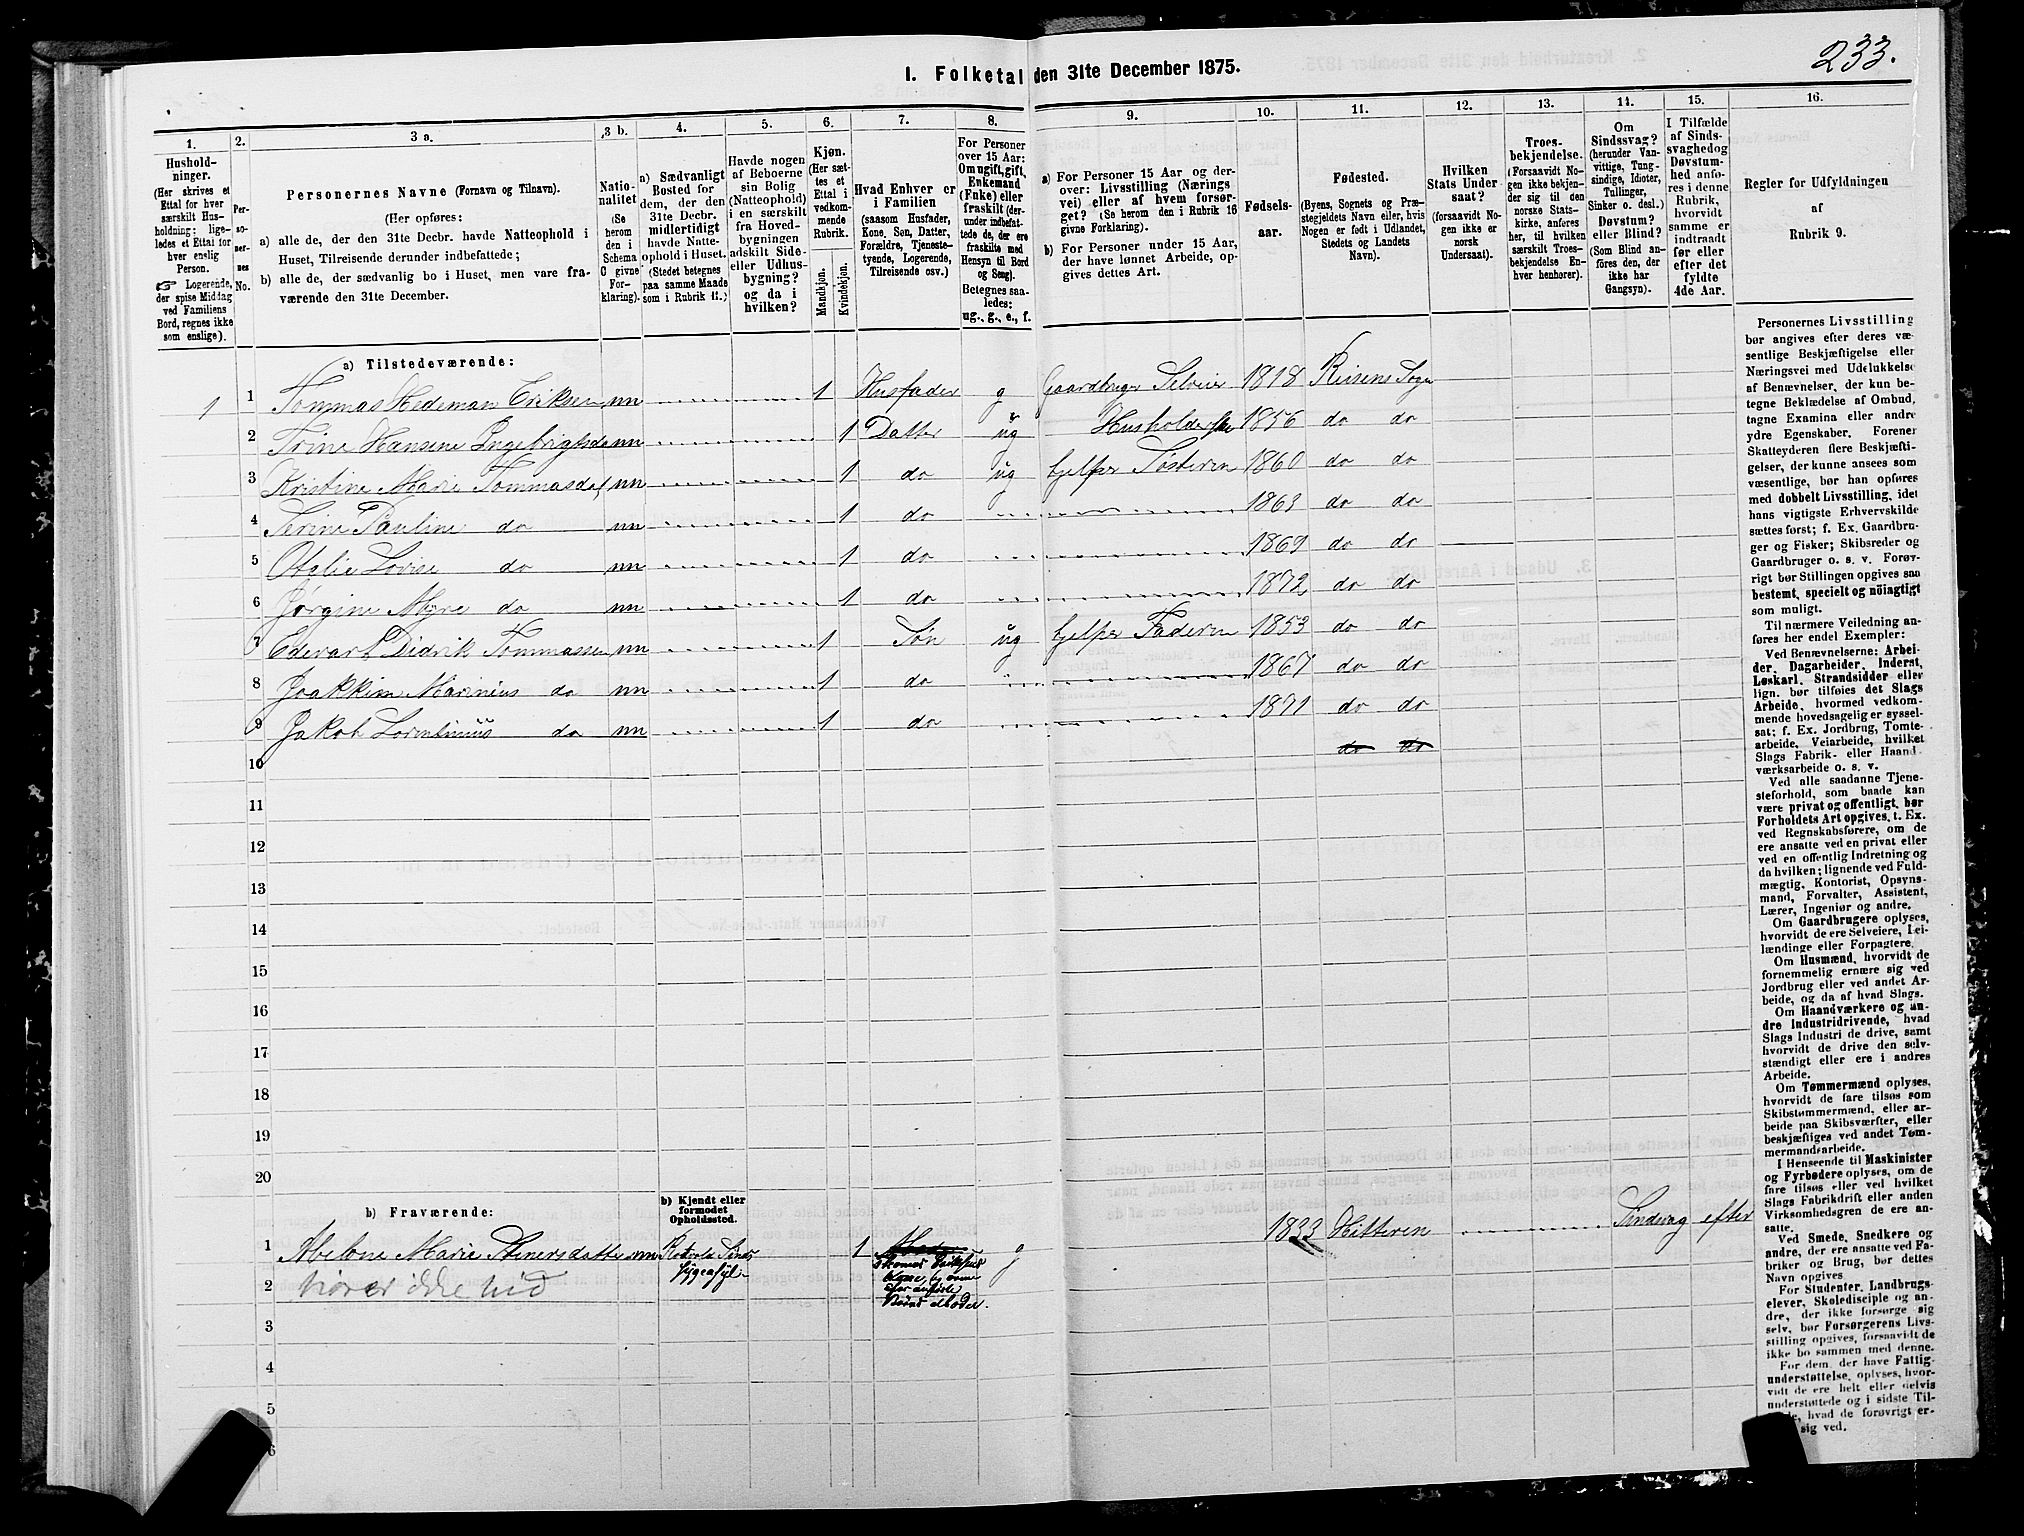 233.
I. Folketal den 31te December 1875.
1. 2. 3 a. 3 b. 4. 5. 6. 7. 8. 9. 10. 11. 12. 13. 14. 15. 16.
Hushold-
ninger.
(Her skrives et
Ettal for hver
særskilt Hus-
holdning; lige-
ledes et Ettal for
hver enslig
Person.
☞ Logerende,
der spise Middag
ved Familiens
Bord, regnes ikke
som enslige).
Per-
so-
ner-
nes
No.
Personernes Navne (Fornavn og Tilnavn).
(Her opføres:
a) alle de, der den 31te Decbr. havde Natteophold i
Huset, Tilreisende derunder indbefattede;
b) alle de, der sædvanlig bo i Huset, men vare fra-
værende den 31te December.
Natio-
nalitet
(Se
herom
den i
Schema
C givne
For-
klaring).
a) Sædvanligt
Bosted for
dem, der den
31te Decbr.
midlertidigt
havde Natte-
ophold i Huset.
(Stedet betegnes
paa samme Maade
som i Rubrik 11.)
Havde nogen
af Beboerne
sin Bolig
(Natteophold)
i en særskilt
fra Hoved-
bygningen
adskilt Side-
eller Udhus-
bygning?
og da i
hvilken?
Kjøn.
(Her sæt-
tes et
Ettal i
vedkom-
mende
Rubrik.
Mandkjøn.
Kvindekjøn.
Hvad Enhver er
i Familien
(saasom Husfader,
Kone, Søn, Datter,
Forældre, Tjeneste-
tyende, Logerende,
Tilreisende osv.)
For Personer
over 15 Aar:
Om ugift, gift,
Enkemand
(Enke) eller
fraskilt (der-
under indbefat-
tede de, der ere
fraskilte med
Hensyn til Bord
og Seng).
Betegnes saa-
ledes:
ug., g., e., f.
a) For Personer 15 Aar og der-
over: Livsstilling (Nærings
vei) eller af hvem forsør-
get? (Se herom den i Rubrik 16
givne Forklaring).
b) For Personer under 15 Aar,
der have lønnet Arbeide, op-
gives dettes Art.
Fødsels-
aar.
Fødested.
(Byens, Sognets og Præ-
stegjeldets Navn eller, hvis
Nogen er født i Udlandet,
Stedets og Landets
Navn).
Hvilken
Stats Under-
saat?
(forsaavidt No-
gen ikke er
norsk
Undersaat).
Troes-
bekjendelse.
(Forsaavidt No-
gen ikke bekjen-
der sig til den
norske Stats-
kirke, anføres
her, til hvilken
særskilt Troes-
bekjendelse En-
hver henhører).
Om
Sindssvag?
(herunder Van-
vittige, Tung-
sindige, Idioter,
Tullinger,
Sinker o. desl.)
Døvstum?
eller Blind?
(Som Blind an-
føres den, der
ikke har
Gangsyn).
I Tilfælde
af Sinds-
svaghed og
Døvstum-
hed anfø-
res i denne
Rubrik,
hvorvidt
samme er
indtraadt
før eller
efter det
fyldte
4de Aar.
Regler for Udfyldningen
af
Rubrik 9.
a) Tilstedeværende:
1 1 Tommas Hedeman Eriksen nn 1 Husfader g Gaardbruger Selveier 1818 Reisens Sogn
2 Trine Hansene Ingebrigtsda nn 1 Datter ug Husholderske 1856 do do
3 Kristine Marie Tommasdat nn 1 do ug hjelper Søsteren 1860 do do
4 Serine Pauline do nn 1 do 1863 do do
5 Otelie Lovise do nn 1 do 1869 do do
6 Jørgine Myre do nn 1 do 1872 do do
7 Edevart Didrik Tommassen nn 1 Søn ug hjelper Faderen 1853 do do
8 Joakkim Marinius do nn 1 do 1867 do do
9 Jakob Lorentinius do nn 1 do 1871 do do
10 do do
11
12
13
14
15
16
17
18
19
20
b) Fraværende:
b) Kjendt eller
formodet
Opholdssted.
1 Abelone Marie Steinersdatter nn 1 g 1833 Hitteren Sindsvag efter
2 hører ikke hid
3
4
5
6
Personernes Livsstilling
bør angives efter deres væ-
sentlige Beskjæftigelse eller
Næringsvei med Udelukkelse
af Benævnelser, der kun be-
tegne Beklædelse af Ombud,
tagne Examina eller andre
ydre Egenskaber. Forener
Skatteyderen flere Beskjæfti-
gelser, der kunne ansees som
væsentlige, bør han opføres
med dobbelt Livsstilling, idet
hans vigtigste Erhvervskilde
sættes først; f. Ex. Gaardbru-
ger og Fisker; Skibsreder og
Gaardbruger o. s. v. Forøv-
rigt bør Stillingen opgives saa
bestemt, specielt og nöiagtigt
som muligt.
Til nærmere Veiledning an-
føres her endel Exempler:
Ved Benævnelserne: Arbei-
der, Dagarbeider, Inderst,
Løskarl, Strandsidder eller
lign. bør tilføies det Slags
Arbeide, hvormed vedkom-
mende hovedsagelig er syssel-
sat; f. Ex. Jordbrug, Tomte-
arbeide, Veiarbeide, hvilket
Slags Fabrik- eller Haand-
værksarbeide o. s. v.
Ved alle saadanne Tjene-
steforhold, som baade kan
være privat og offentligt, bør
Forholdets Art opgives, t. Ex.
ved Regnskabsførere, om de
ere ansatte ved en privat eller
ved en offentlig Indretning og
da hvilken; lignende ved Fuld-
mægtig, Kontorist, Opsyns-
mand, Forvalter, Assistent,
Lærer, Ingeniør og andre.
Om Gaardbrugere oplyses,
hvorvidt de ere Selveiere, Lei-
lændinge eller Forpagtere.
Om Husmænd, hvorvidt de
fornemmelig ernære sig ved
Jordbrug eller ved andet Ar-
beide, og da af hvad Slags.
Om Haandværkere og an-
dre Industridrivende, hvad
Slags Industri de drive, samt
hvorvidt de drive den selv-
stændigt eller ere i andres
Arbeide.
Om Tømmermænd oplyses,
hvorvidt de fare tilsøs som
Skibstømmermænd, eller ar-
beide paa Skibsværfter, eller
beskjæftiges ved andet Tøm-
mermandarbeide.
I Henseende til Maskinister
og Fyrbødere oplyses, om de
fare tilsøs eller ved hvilket
Slags Fabrikdrift eller anden
Virksomhedsgren de ere an-
satte.
Ved Smede, Snedkere og
andre, der ere ansatte ved Fa-
briker og Brug, bør dettes
Navn opgives.
For Studenter, Landbrugs-
elever, Skoledisciple og an-
dre, der ikke forsørge sig
selv, bør Forsørgerens Livs-
stilling opgives, forsaavidt de
ikke bo sammen med denne.
For dem, der have Fattig-
understøttelse, oplyses, hvor-
vidt de ere helt eller delvis
understøttede og i sidste Til-
hvad de forøvrigt er-
sig ved.